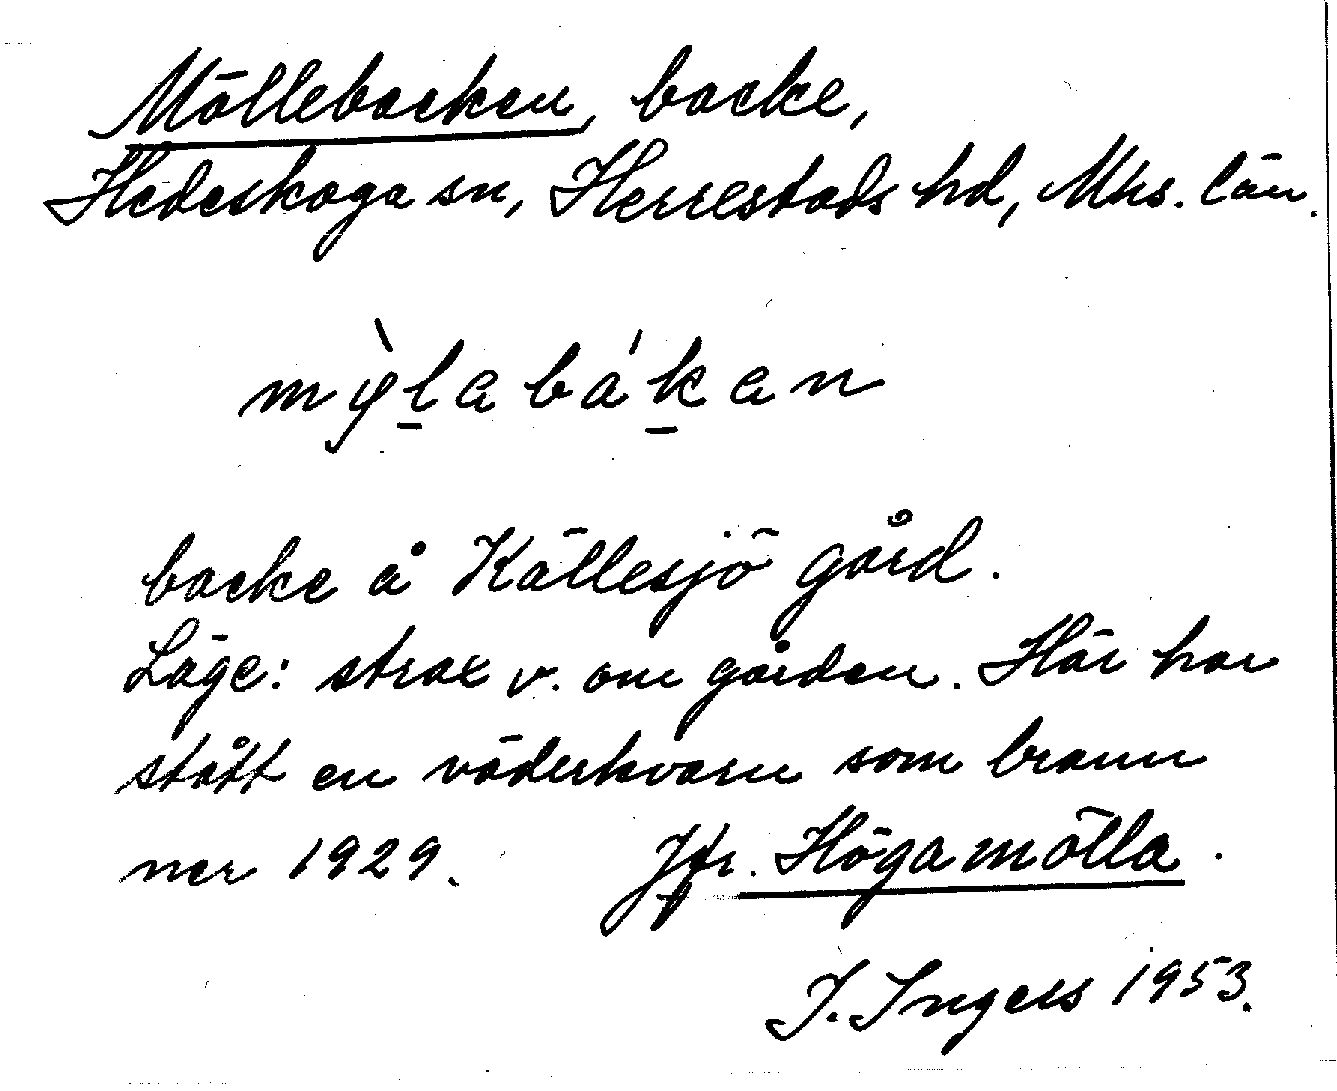 Möllebacken, backe,
Hedeskoga sn, Herrestads hd, Mhs. län.
mỳl̲abák̲an
backe å Källesjö gård.
Läge: strax v. om gården. Här har
stått en väderkvarn som brann
ner 1929. Jfr. Högamölla.
I. Ingers 1953.